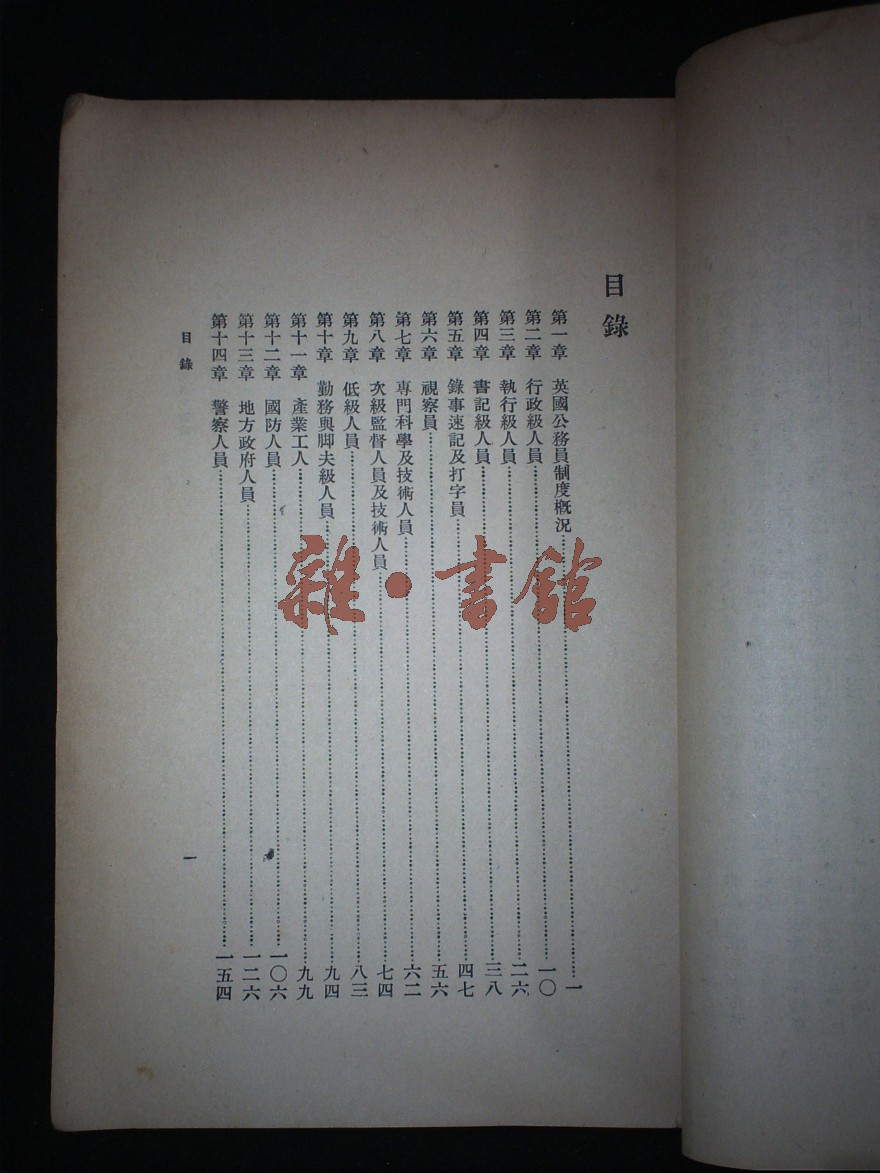 目錄
第一章 英國公務員制度概況……一
第二章 行政級人員……一〇
第三章 執行級人員……二六
第四章 書記級人員……三八
第五章 錄事速記及打字員……四七
第六章 視察員……五六
第七章 專門科學及技術人員……六二
第八章 次級監督人員及技術人員……七四
第九章 低級人員……八三
第十章 勤務與脚夫級人員……九四
第十一章 產業工人……九九
第十二章 國防人員……一〇六
第十三章 地方政府人員……一二六
第十四章 警察人員……一五四
目錄
一
雜·書館